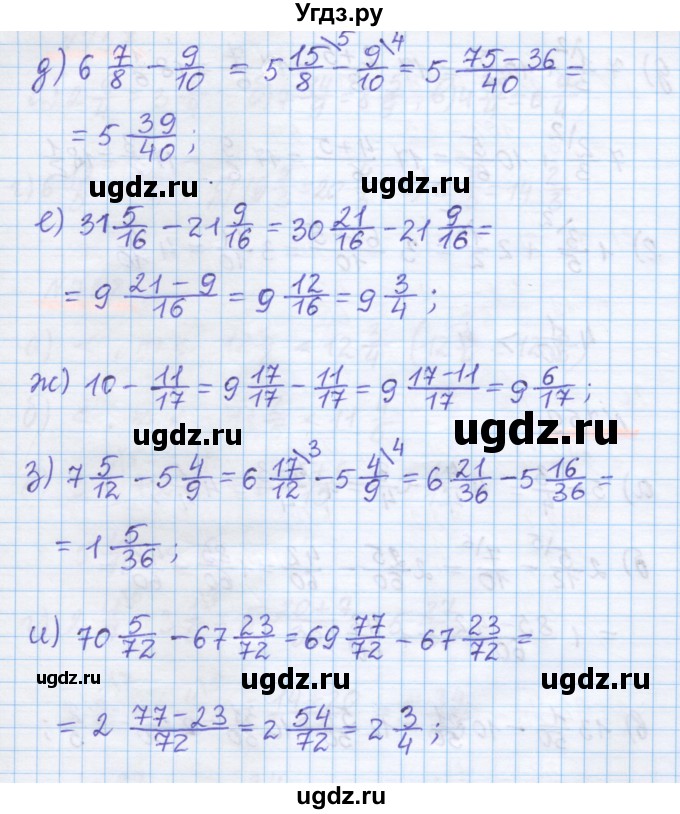 Угдз.ру
д) 6 7/8 − 9/10 = 5 15\5/8 − 9\4/10 = 5 75−36/40 =
= 5 39/40;
ugdz.ru ugdz.ru
е) 31 5/16 − 21 9/16 = 30 21/16 − 21 9/16 =
= 9 21−9/16 = 9 12/16 = 9 3/4;
ж) 10 − 11/17 = 9 17/17 − 11/17 = 9 17−11/17 = 9 6/17;
ugdz.ru ugdz.ru
з) 7 5/12 − 5 4/9 = 6 17\3/12 − 5 4\4/9 = 6 21/36 − 5 16/36 =
= 1 5/36;
и) 70 5/72 − 67 23/72 = 69 77/72 − 67 23/72 =
ugdz.ru ugdz.ru ugdz.ru
= 2 77−23/72 = 2 54/72 = 2 3/4;
ugdz.ru